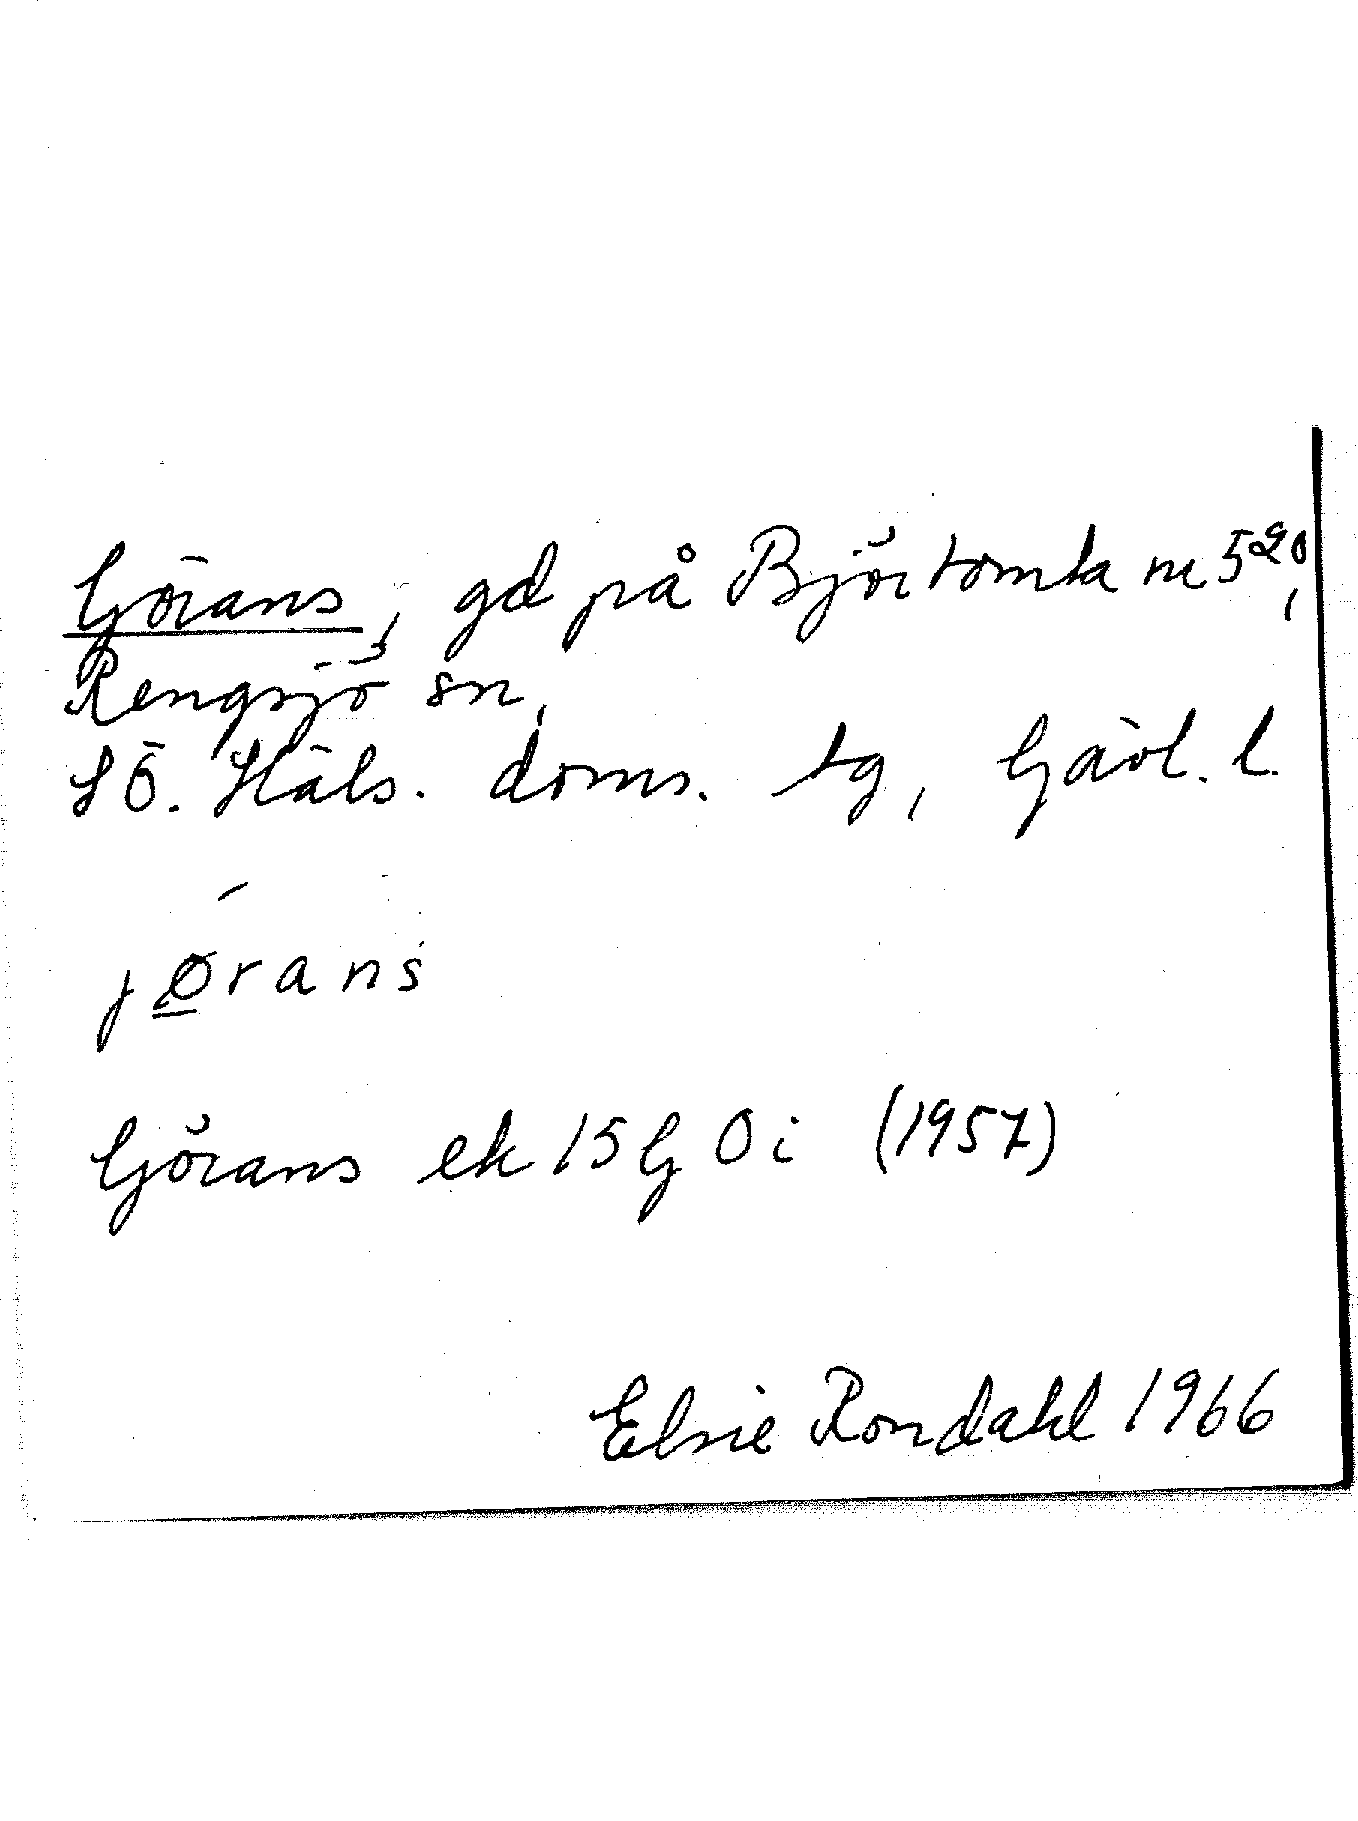 Görans, gd på Björtomta nr 5²⁰,
Rengsjö sn,
SÖ. Häls. doms. tg, Gävl. l.
jø̲rans
Görans ek 15G 0i (1957)
Elsie Rondahl 1966